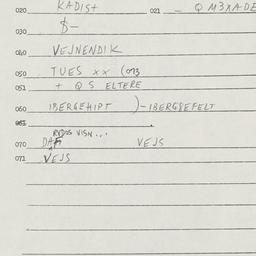 020 KADIST 021 — Q M3XADE
030 $-
040 VEJNENDIK
050 TUES xx (073
051 + Q S ELTERE
060 IBERGEHIPT )-IBERGBEFELT
061
070 DAF VEJS
071 VEJS